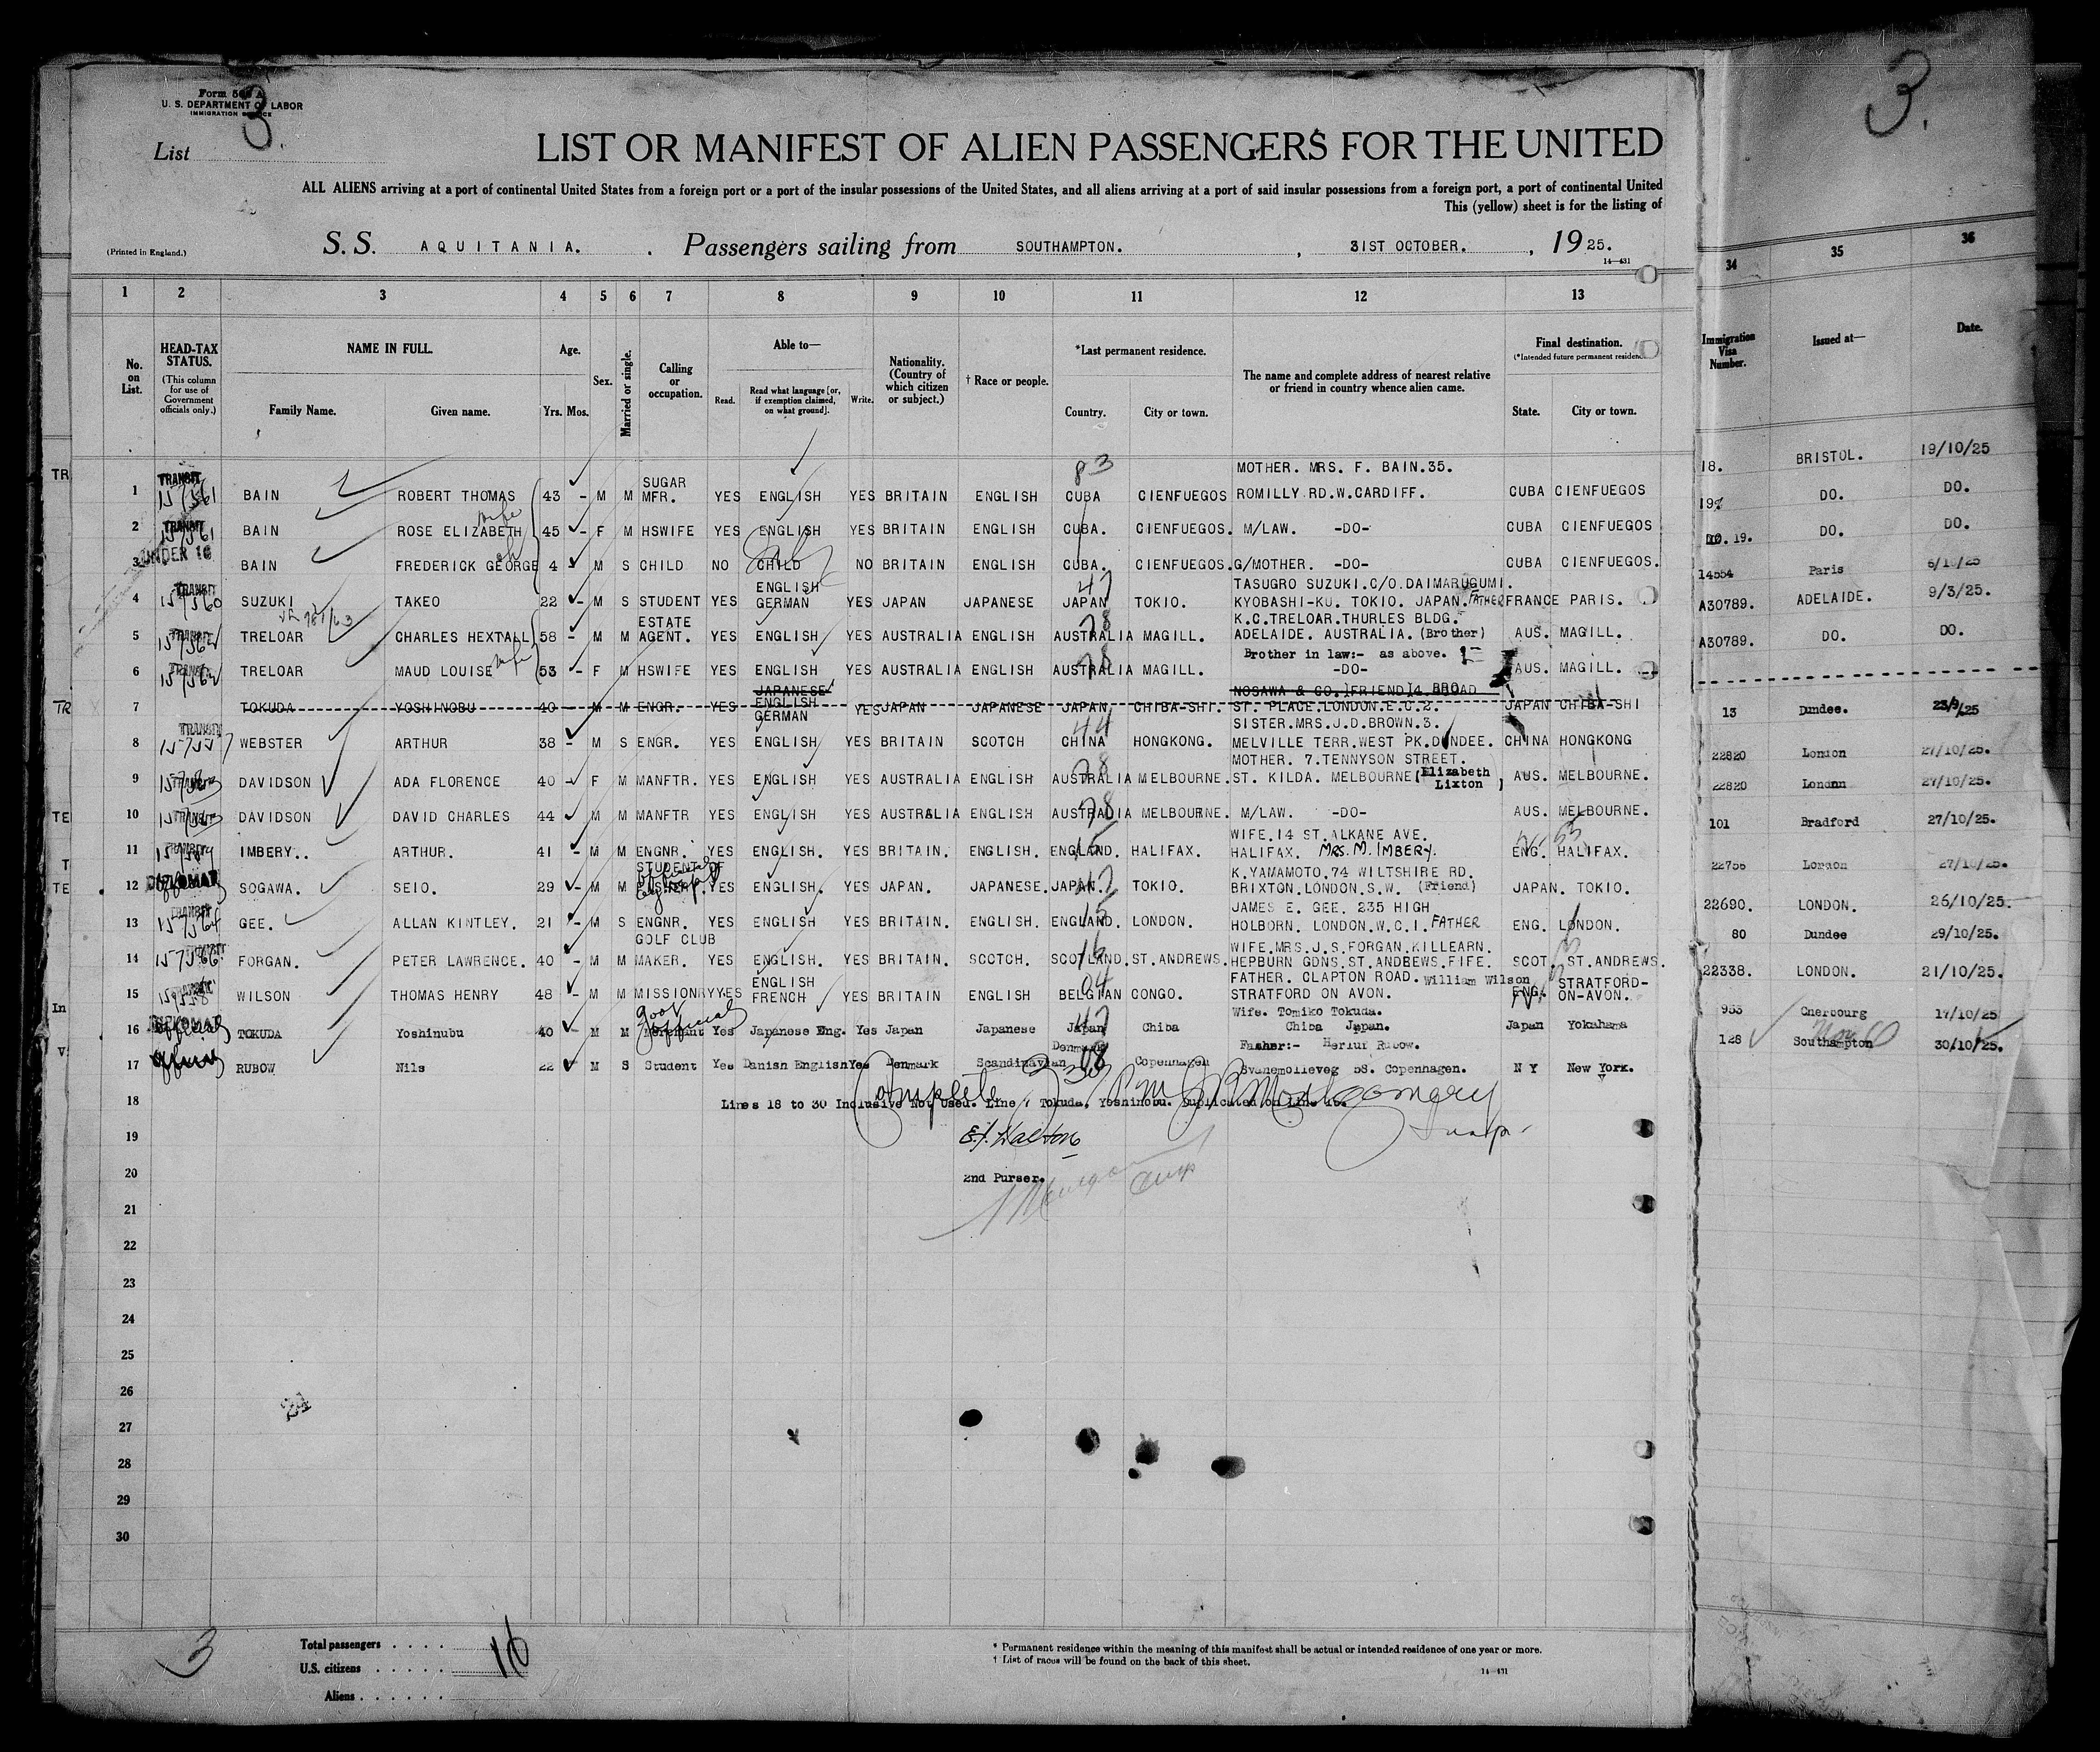 3.
Form 500 A
U. S. DEPARTMENT OF LABOR
IMMIGRATION SERVICE
List 3.
LIST OR MANIFEST OF ALIEN PASSENGERS FOR THE UNITED
ALL ALIENS arriving at a port of continental United States from a foreign port or a port of the insular possessions of the United States, and all aliens arriving at a port of said insular possessions from a foreign port, a port of continental United
This (yellow) sheet is for the listing of
(Printed in England.) S. S. AQUITANIA. Passengers sailing from SOUTHAMPTON. , 31ST OCTOBER. , 1925.
14—431
1 2 3 4 5 6 7 8 9 10 11 12 13 34 35 36
No. on List. HEAD-TAX STATUS. (This column for use of Government officials only.) NAME IN FULL. Family Name. Given name. Age. Yrs. Mos. Sex. Married or single. Calling or occupation. Able to— Read. Read what language [or, if exemption claimed, on what ground]. Write. Nationality. (Country of which citizen or subject.) † Race or people. *Last permanent residence. Country. City or town. The name and complete address of nearest relative or friend in country whence alien came. Final destination. (*Intended future permanent residence) State. City or town. Immigration Visa Number. Issued at— Date.
TR 1 TRANSIT BAIN ROBERT THOMAS 43 - M M SUGAR MFR. YES ENGLISH YES BRITAIN ENGLISH CUBA CIENFUEGOS MOTHER. MRS. F. BAIN.35. ROMILLY RD.W.CARDIFF. CUBA CIENFUEGOS 83
2 TRANSIT BAIN ROSE ELIZABETH wife 45 - F M HSWIFE YES ENGLISH YES BRITAIN ENGLISH CUBA. CIENFUEGOS. M/LAW. -DO- CUBA CIENFUEGOS
3 UNDER 16 BAIN FREDERICK GEORGE ch 4 M S CHILD NO CHILD NO BRITAIN ENGLISH CUBA. CIENFUEGOS. G/MOTHER. -DO- CUBA CIENFUEGOS.
4 TRANSIT SUZUKI TAKEO 22 - M S STUDENT YES ENGLISH GERMAN YES JAPAN JAPANESE JAPAN TOKIO. TASUGRO SUZUKI.C/O.DAIMARUGUMI. KYOBASHI-KU. TOKIO. JAPAN. FATHER FRANCE PARIS. 47
5 TRANSIT TRELOAR CHARLES HEXTALL 58 - M M ESTATE AGENT. YES ENGLISH YES AUSTRALIA ENGLISH AUSTRALIA MAGILL. K.C.TRELOAR.THURLES BLDG. ADELAIDE. AUSTRALIA. (Brother) AUS. MAGILL. 78
6 TRANSIT TRELOAR MAUD LOUISE wife 53 - F M HSWIFE YES ENGLISH YES AUSTRALIA ENGLISH AUSTRALIA MAGILL. Brother in law:- as above. -DO- AUS. MAGILL. 78
TR 7 TOKUDA YOSHINOBU 40 - M M ENGR. YES JAPANESE ENGLISH GERMAN YES JAPAN JAPANESE JAPAN. CHIBA-SHI. NOSAWA & CO.)FRIEND)4 BROAD ST. PLACE.LONDON.E.C.2. JAPAN CHIBA-SHI
8 TRANSIT WEBSTER ARTHUR 38 - M S ENGR. YES ENGLISH YES BRITAIN SCOTCH CHINA HONGKONG. SISTER.MRS.J.D.BROWN.3. MELVILLE TERR.WEST PK.DUNDEE. CHINA HONGKONG 44
9 TRANSIT DAVIDSON ADA FLORENCE 40 - F M MANFTR. YES ENGLISH YES AUSTRALIA ENGLISH AUSTRALIA MELBOURNE. MOTHER. 7.TENNYSON STREET. ST. KILDA. MELBOURNE (Elizabeth Lixton) AUS. MELBOURNE. 78
TE 10 TRANSIT DAVIDSON DAVID CHARLES 44 M M MANFTR YES ENGLISH YES AUSTRALIA ENGLISH AUSTRALIA MELBOURNE. M/LAW. -DO- AUS. MELBOURNE. 78
T 11 TRANSIT IMBERY.. ARTHUR. 41 - M M ENGNR. YES ENGLISH. YES BRITAIN. ENGLISH. ENGLAND. HALIFAX. WIFE.14 ST.ALKANE AVE. HALIFAX. MRS. M. IMBERY. ENG. HALIFAX. 15
TE 12 DIPLOMAT SOGAWA. SEIO. 29 - M M STUDENT OF YES ENGLISH. YES JAPAN. JAPANESE. JAPAN. TOKIO. K.YAMAMOTO.74 WILTSHIRE RD. BRIXTON.LONDON.S.W. (Friend) JAPAN. TOKIO. 47
13 TRANSIT GEE. ALLAN KINTLEY. 21 - M S ENGNR. YES ENGLISH YES BRITAIN. ENGLISH. ENGLAND. LONDON. JAMES E. GEE. 235 HIGH HOLBORN. LONDON.W.C.I. FATHER ENG. LONDON. 15
14 TRANSIT FORGAN. PETER LAWRENCE. 40 - M M GOLF CLUB MAKER. YES ENGLISH. YES BRITAIN. SCOTCH. SCOTLAND. ST.ANDREWS. WIFE.MRS.J.S.FORGAN.KILLEARN. HEPBURN GDNS.ST.ANDBEWS.FIFE. SCOT. ST.ANDREWS. 16
In 15 TRANSIT WILSON THOMAS HENRY 48 - M M MISSIONRY YES ENGLISH FRENCH YES BRITAIN ENGLISH BELGIAN CONGO. FATHER. CLAPTON ROAD. William Wilson STRATFORD ON AVON. ENG. STRATFORD-ON-AVON. 04
16 DIPLOMAT Official TOKUDA Yoshinubu 40 - M M Merchant Govt official Yes Japanese Eng. Yes Japan Japanese Japan Chiba Wife. Tomiko Tokuda. Chiba Japan. Japan Yokahama 47
V 17 RUBOW Nils 22 M S Student Yes Danish English Yes Denmark Scandinavian Denmark Copenhagen Father:- Herluf Rubow. Svanemolleveg 58. Copenhagen. N Y New York. 08
18. BRISTOL. 19/10/25
19. DO. DO.
DO. 19. DO. DO.
14554 Paris 6/10/25
A30789. ADELAIDE. 9/3/25.
A30789. DO. DO.
13 Dundee. 23/9/25
22820 London 27/10/25.
22820 London 27/10/25.
101 Bradford 27/10/25.
22756 London 27/10/25.
22690. LONDON. 26/10/25.
80 Dundee 29/10/25.
22338. LONDON. 21/10/25.
953 Cherbourg 17/10/25
128 Southampton 30/10/25.
18 Lines 18 to 30 Inclusive Not Used. Line 7 Tokuda, Yoshinobu. Duplicated on Line 16.
Complete
19
2nd Purser.
20
21
22
23
24
25
26
27
28
29
30
3
Total passengers . . . . 16
U.S. citizens . . . . .
Aliens . . . . . .
* Permanent residence within the meaning of this manifest shall be actual or intended residence of one year or more.
† List of races will be found on the back of this sheet.
14—431